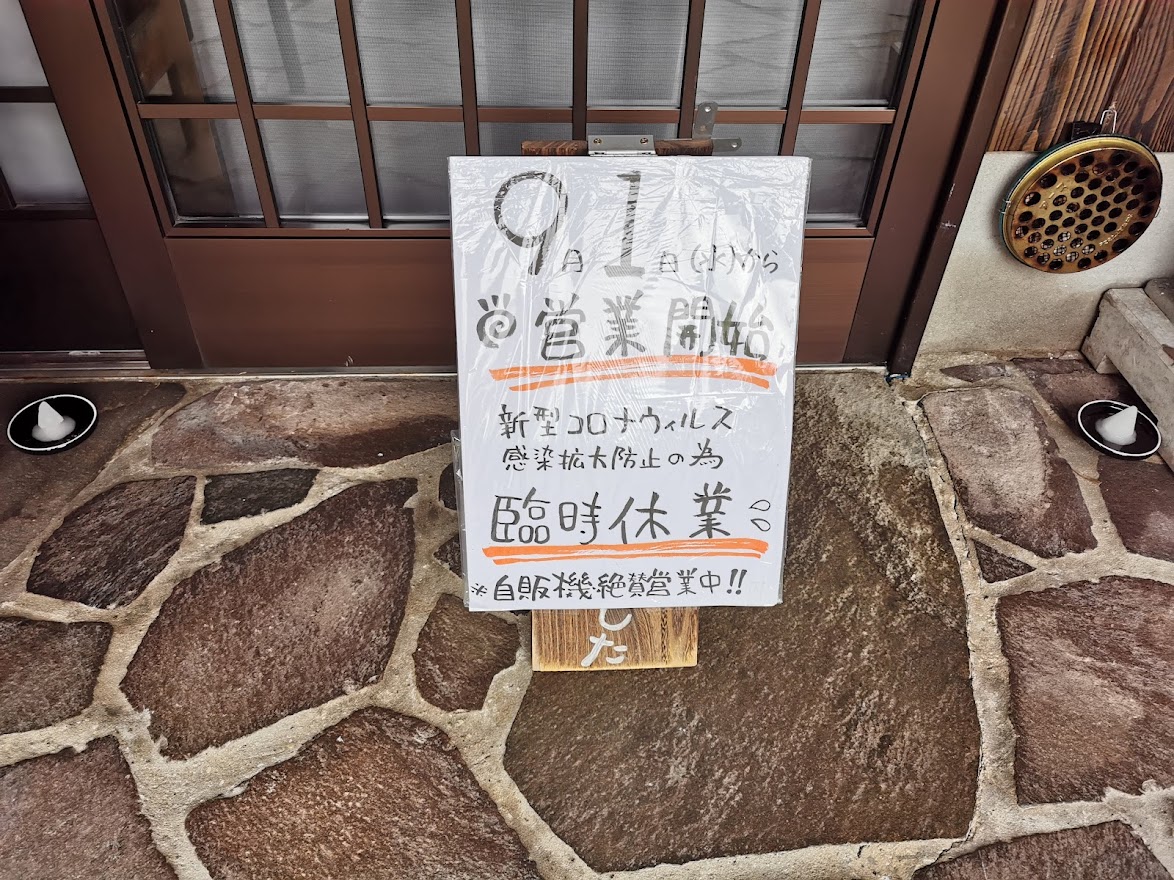 9月1日(水)から
営業開始
新型コロナウィルス
感染拡大防止の為
臨時休業
※自販機絶賛営業中!!
した